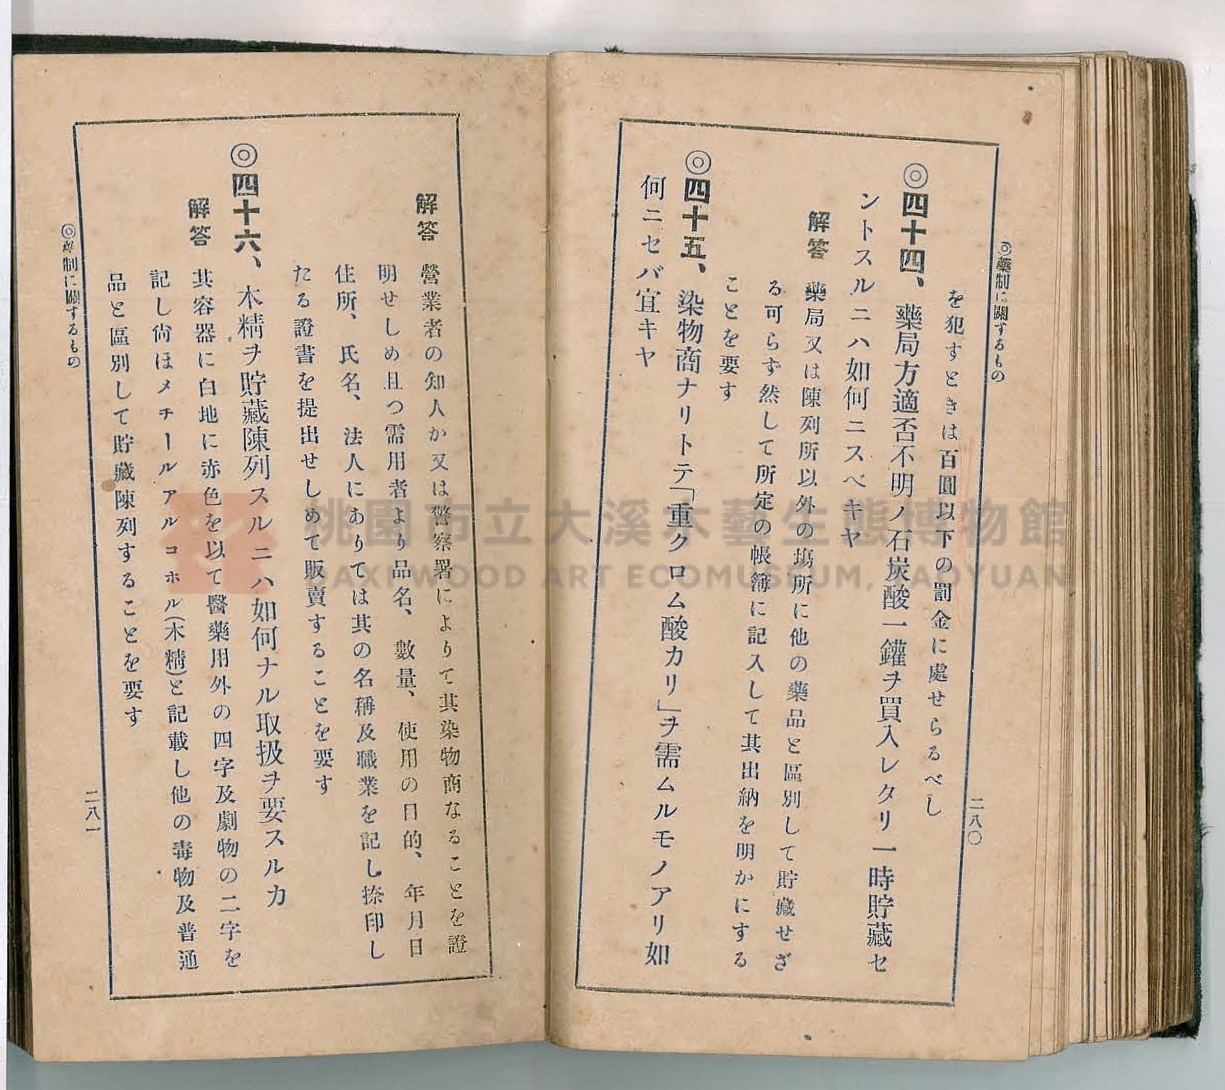 ◎藥制に關するもの
を犯すときは百圓以下の罰金に處せらるべし
◎四十四、藥局方適否不明ノ石炭酸一鑵ヲ買入レタリ一時貯藏セ
ントスルニハ如何ニスベキヤ
解答 藥局又は陳列所以外の塲所に他の藥品と區別して貯藏せざ
る可らず然して所定の帳簿に記入して其出納を明かにする
ことを要す
◎四十五、染物商ナリトテ「重クロム酸カリ」ヲ需ムルモノアリ如
何ニセバ宜キヤ
二八〇
解答 營業者の知人か又は警察署によりて其染物商なることを證
明せしめ且つ需用者より品名、數量、使用の目的、年月日
住所、氏名、法人にありては其の名稱及職業を記し捺印し
たる證書を提出せしめて販賣することを要す
◎四十六、木精ヲ貯藏陳列スルニハ如何ナル取扱ヲ要スルカ
解答 其容器に白地に赤色を以て醫藥用外の四字及劇物の二字を
記し尙ほメチールアルコホル(木精)と記載し他の毒物及普通
品と區別して貯藏陳列することを要す
◎藥制に關するもの
二八一
桃園市立大溪木藝生態博物館
DAXI WOOD ART ECOMUSEUM, TAOYUAN